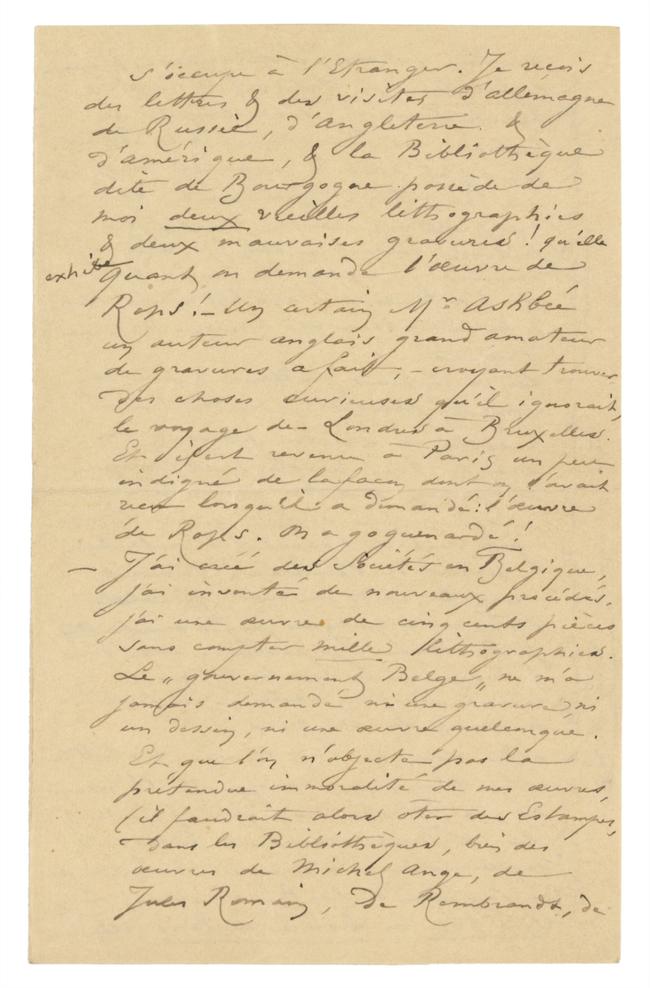 s'occupe à l'Etranger. Je reçois
des lettres & des visites d'allemagne
de Russie, d'Angleterre &
d'amérique, & la Bibliothèque
dite de Bourgogne possède de
moi deux vieilles lithographies
& deux mauvaises gravures! qu'elle
exhibe quand on demande l'œuvre de
Rops! – Un certain Mr Ashbée
un auteur anglais grand amateur
de gravures a fait, – croyant trouver
des choses curieuses qu'il ignorait,
le voyage de – Londres à Bruxelles.
Et il est revenu à Paris un peu
indigné de la façon dont on l'avait
reçu lorsqu'il a demandé: l'œuvre
de Rops. On a goguenardé!
– J'ai créé des Sociétés en Belgique,
j'ai inventé de nouveaux procédés,
j'ai une œuvre de cinq cents pièces
sans compter mille lithographies.
Le „gouvernement Belge„ ne m'a
jamais demandé ni une gravure, ni
un dessin, ni une œuvre quelconque.
Et que l'on n'objecte pas la
prétendue immoralité de mes œuvres,
(il faudrait alors oter des Estampes,
dans les Bibliothèques, bien des
œuvres de Michel Ange, de
Jules Romain, De Rembrandt, de